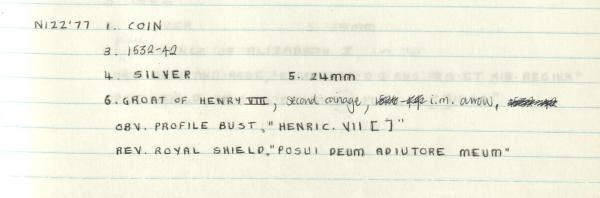 N122'77 1. COIN
3. 1532-42
4. SILVER 5. 24mm
6. GROAT OF HENRY VIII, second coinage, i.m. arrow,
OBV. PROFILE BUST, "HENRIC. VII [ ]"
REV. ROYAL SHIELD, "POSUI DEUM ADIUTORE MEUM"